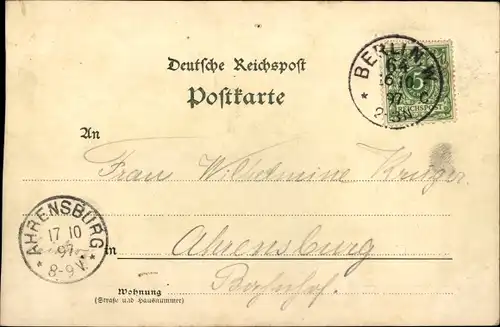 Deutsche Reichspost
Postkarte
BERLIN.W.
64
97
2-3N
5
REICHSPOST
An
Frau Wilhelmine Krüger.
AHRENSBURG
17 10
97
8-9V.
in Ahrensburg
Bahnhof.
Wohnung
(Straße und Hausnummer)